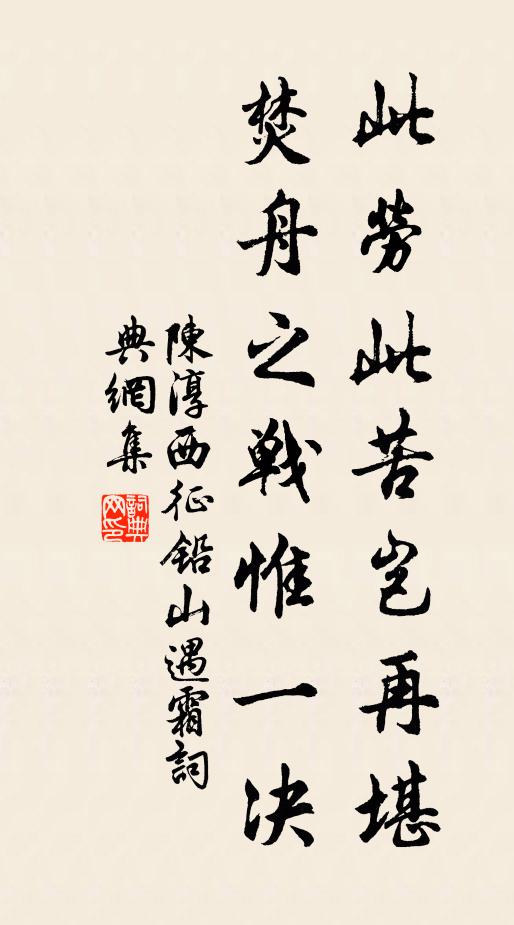 此勞此苦岂再堪
焚舟之戰惟一决
陳淳西征鉛山遇霜詞
典網集
詞典
网印